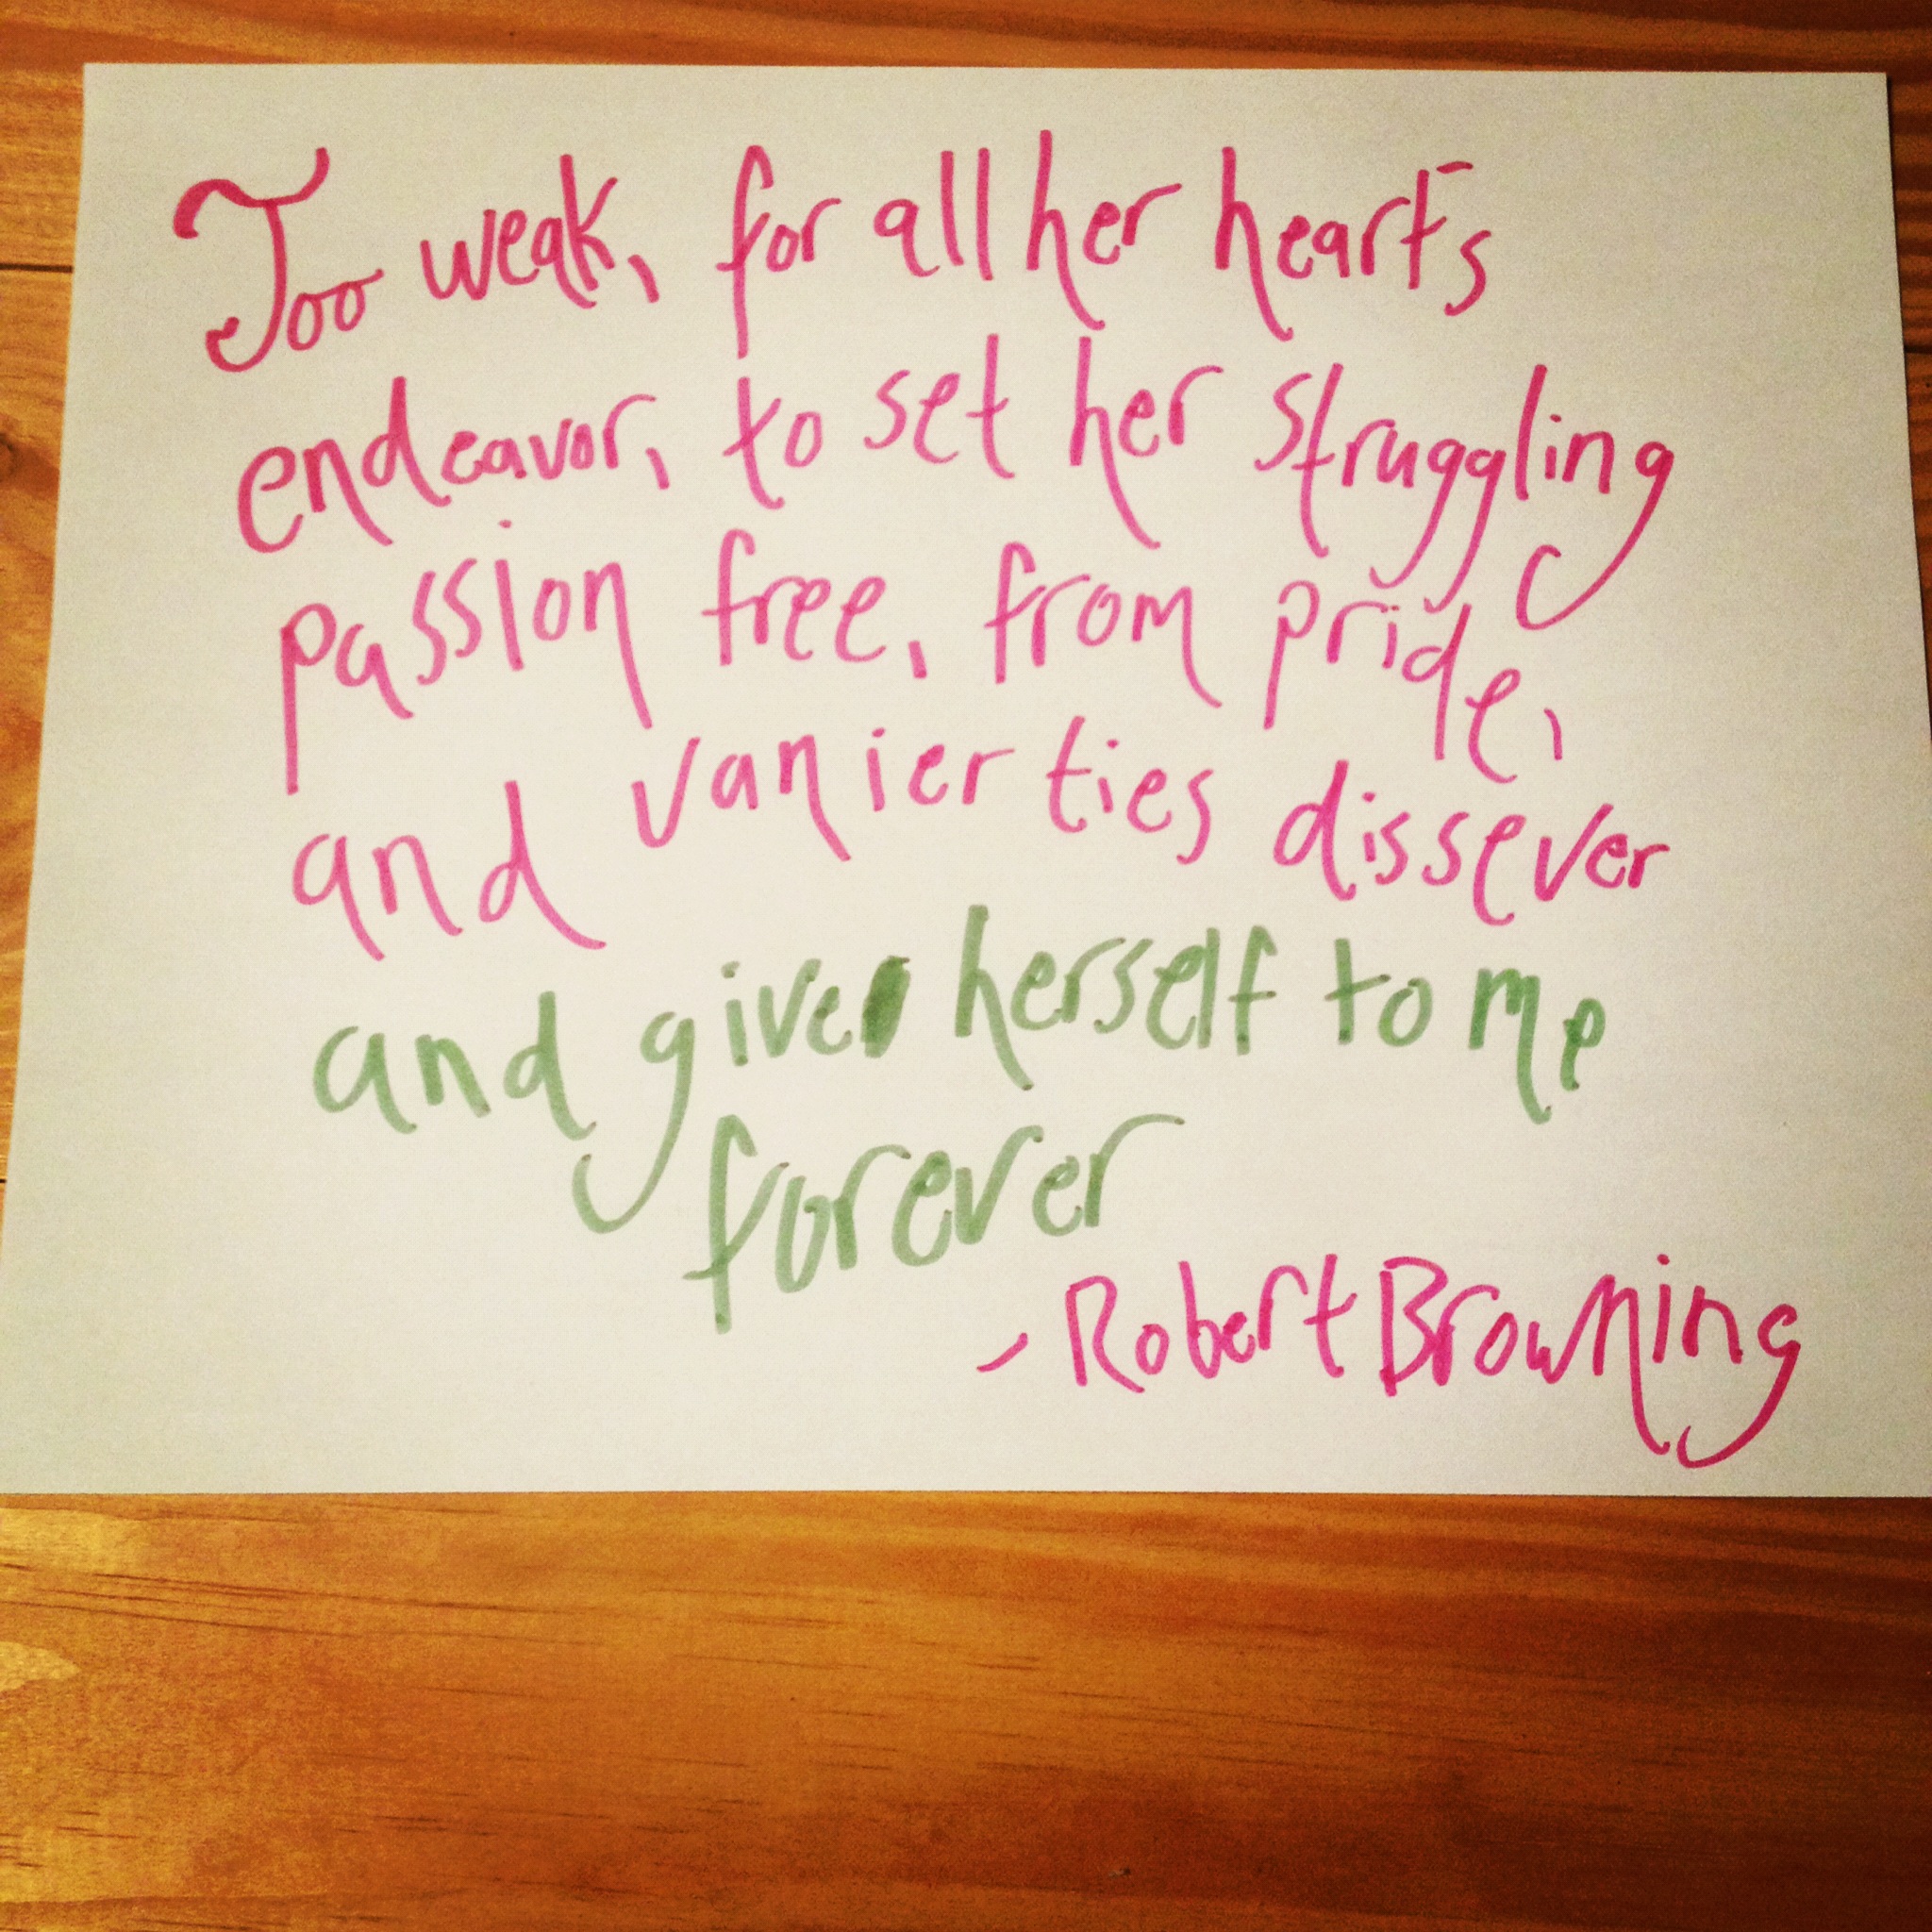 Too weak, for all her heart's
endeavor, to set her struggling
passion free, from pride,
and vanier ties dissever
and give herself to me
forever
- Robert Browning